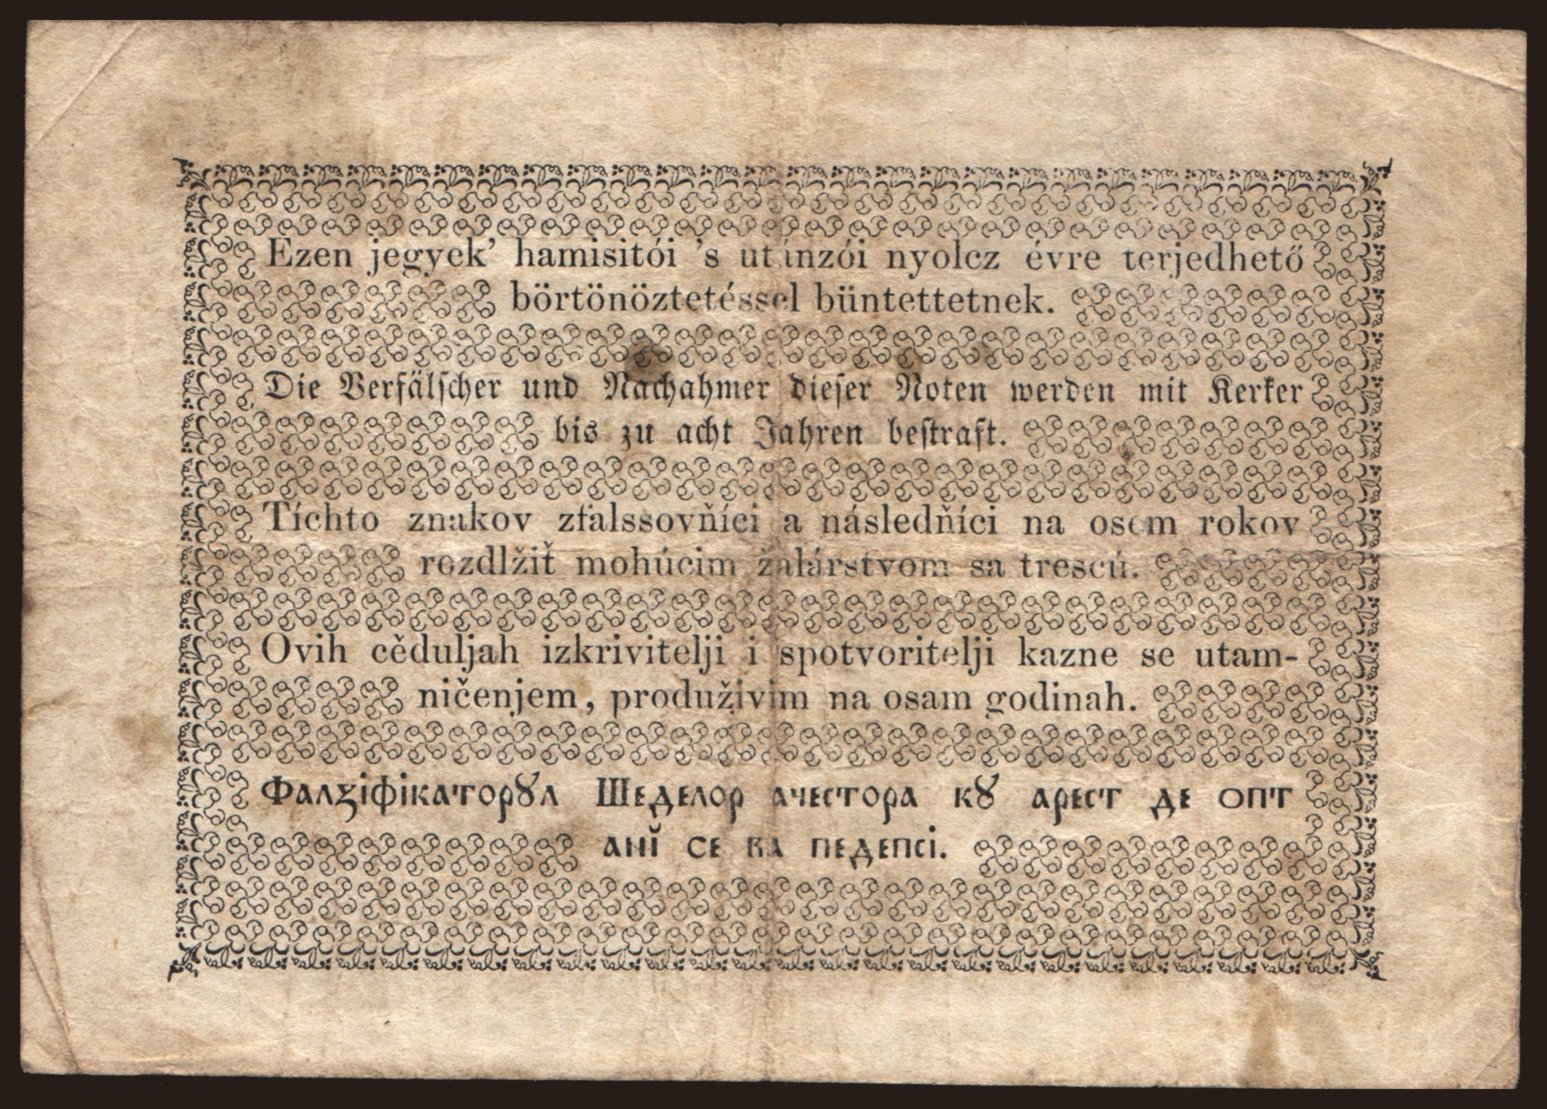 Ezen jegyek' hamisitói 's utánzói nyolcz évre terjedhető
börtönöztetéssel büntettetnek.
Die Verfälscher und Nachahmer dieser Noten werden mit Kerker
bis zu acht Jahren bestraft.
Tíchto znakov zfalssovňíci a následňíci na osem rokov
rozdlžiť mohúcim žalárstvom sa trescú.
Ovih cěduljah izkrivitelji i spotvoritelji kazne se utam-
ničenjem, produživim na osam godinah.
Фалꙁіфікаторꙋл Шеделор ачестора кꙋ арест де опт
анĭ се ва педепсі.